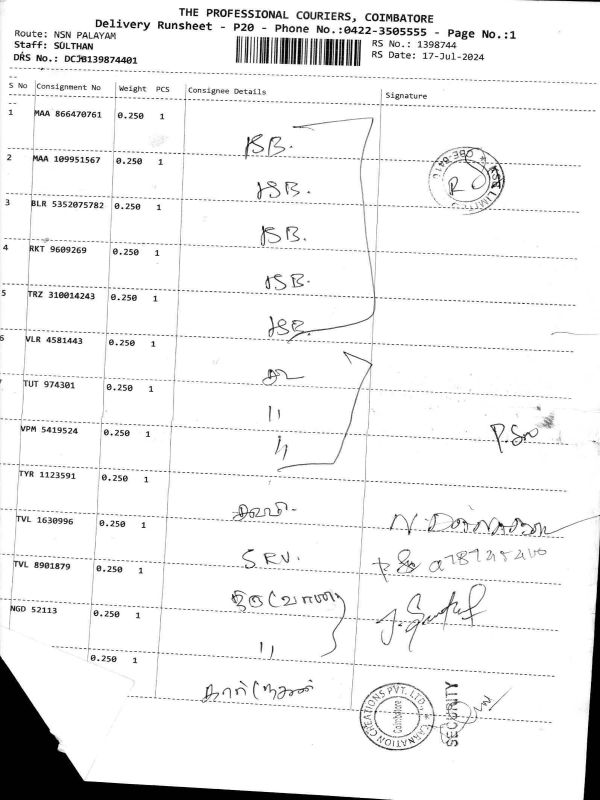 THE PROFESSIONAL COURIERS, COIMBATORE
Delivery Runsheet - P20 - Phone No.:0422-3505555 - Page No.:1
Route: NSN PALAYAM
Staff: SULTHAN
DRS No.: DCJB139874401
RS No.: 1398744
RS Date: 17-Jul-2024
S No Consignment No Weight PCS Consignee Details Signature
1 MAA 866470761 0.250 1 KSB.
2 MAA 109951567 0.250 1 KSB.
3 BLR 5352075782 0.250 1 KSB.
4 RKT 9609269 0.250 1 KSB.
5 TRZ 310014243 0.250 1 KSB.
6 VLR 4581443 0.250 1
TUT 974301 0.250 1 11
VPM 5419524 0.250 1 11
TYR 1123591 0.250 1
TVL 1630996 0.250 1 S.RV.
TVL 8901879 0.250 1
NGD 52113 0.250 1 11
0.250 1
KSB LIMITED
CARNATION CREATIONS PVT. LTD.,
Coimbatore
SECURITY